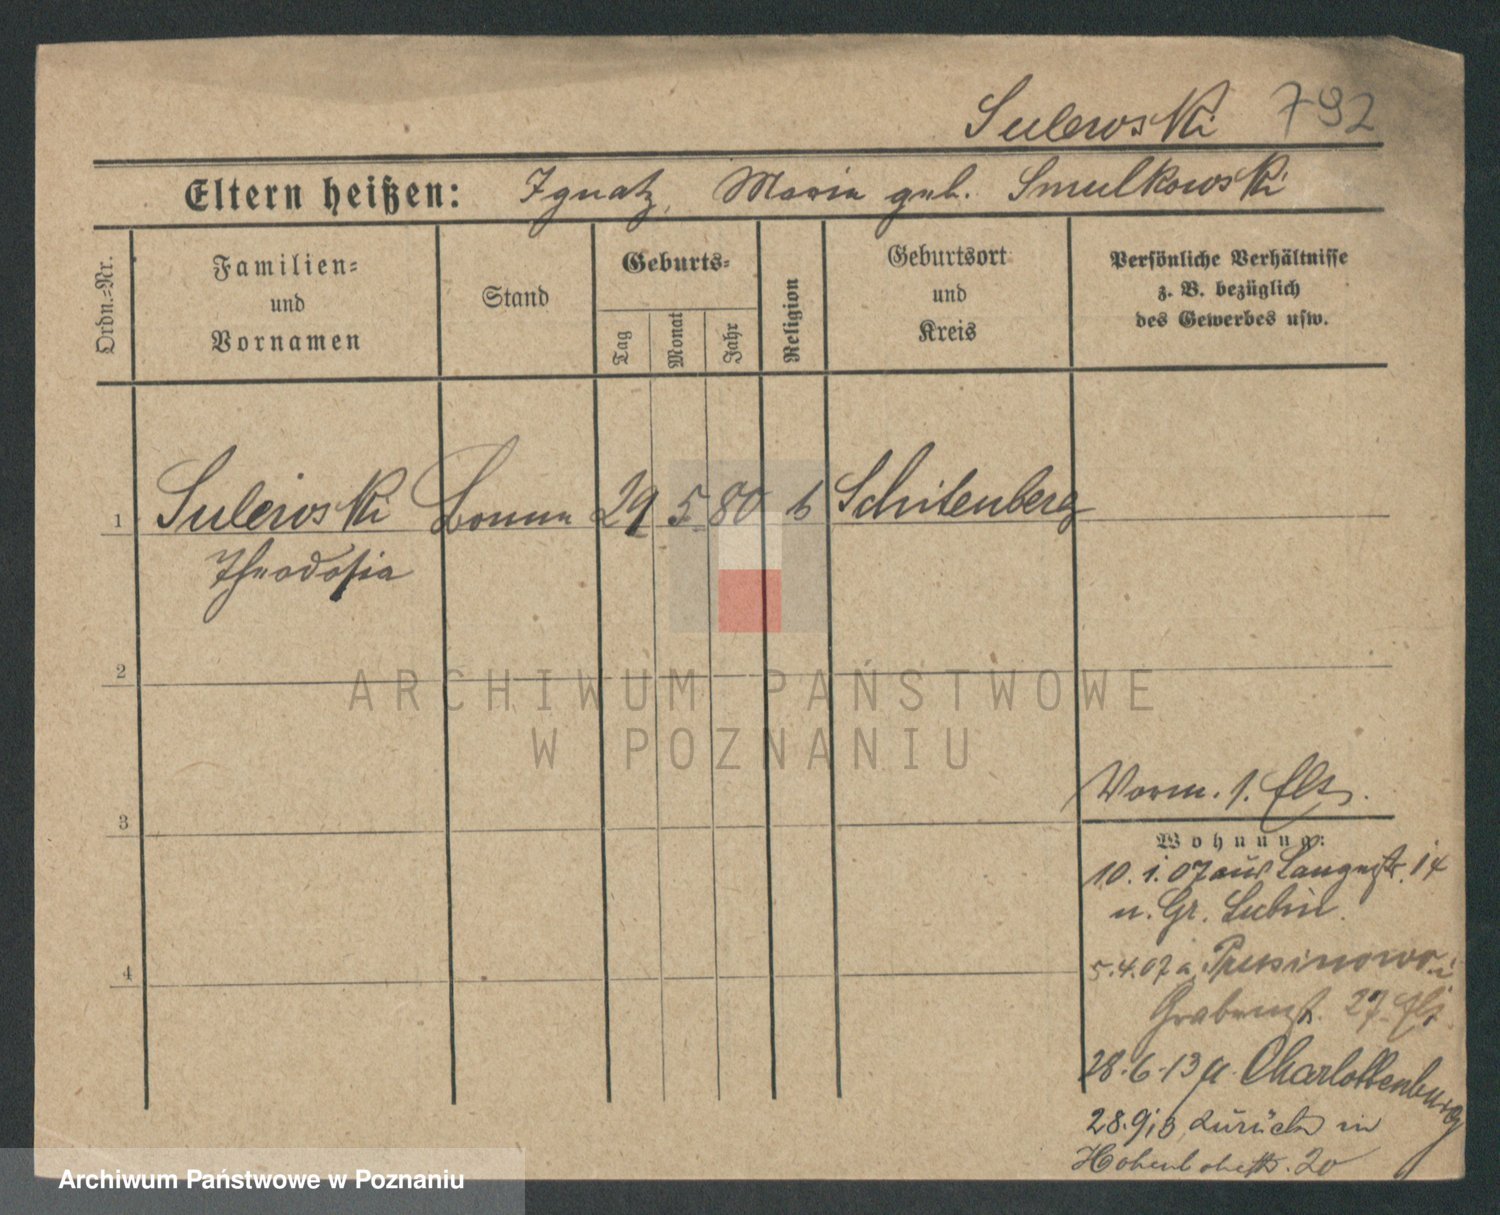 Sulewski 792
Eltern heißen: Ignatz, Maria geb. Smulkowski
Ordn.=Nr.
Familien=
und
Vornamen
Stand
Geburts=
Tag
Monat
Jahr
Religion
Geburtsort
und
Kreis
Persönliche Verhältnisse
z. B. bezüglich
des Gewerbes usw.
1 Sulewski 29 5 80 Schilenberg
Theodosia
2
ARCHIWUM PAŃSTWOWE
W POZNANIU
3
4
Vorm. 1.
Wohnung:
10. 1. 07 aus Langestr. 14
n. Gr. Lubin.
5.4.07 a Prusinowo
Grabenst. 27
28.6.13 a. Charlottenburg
28.9.13 zurück in
Hohenlohestr. 20
Archiwum Państwowe w Poznaniu